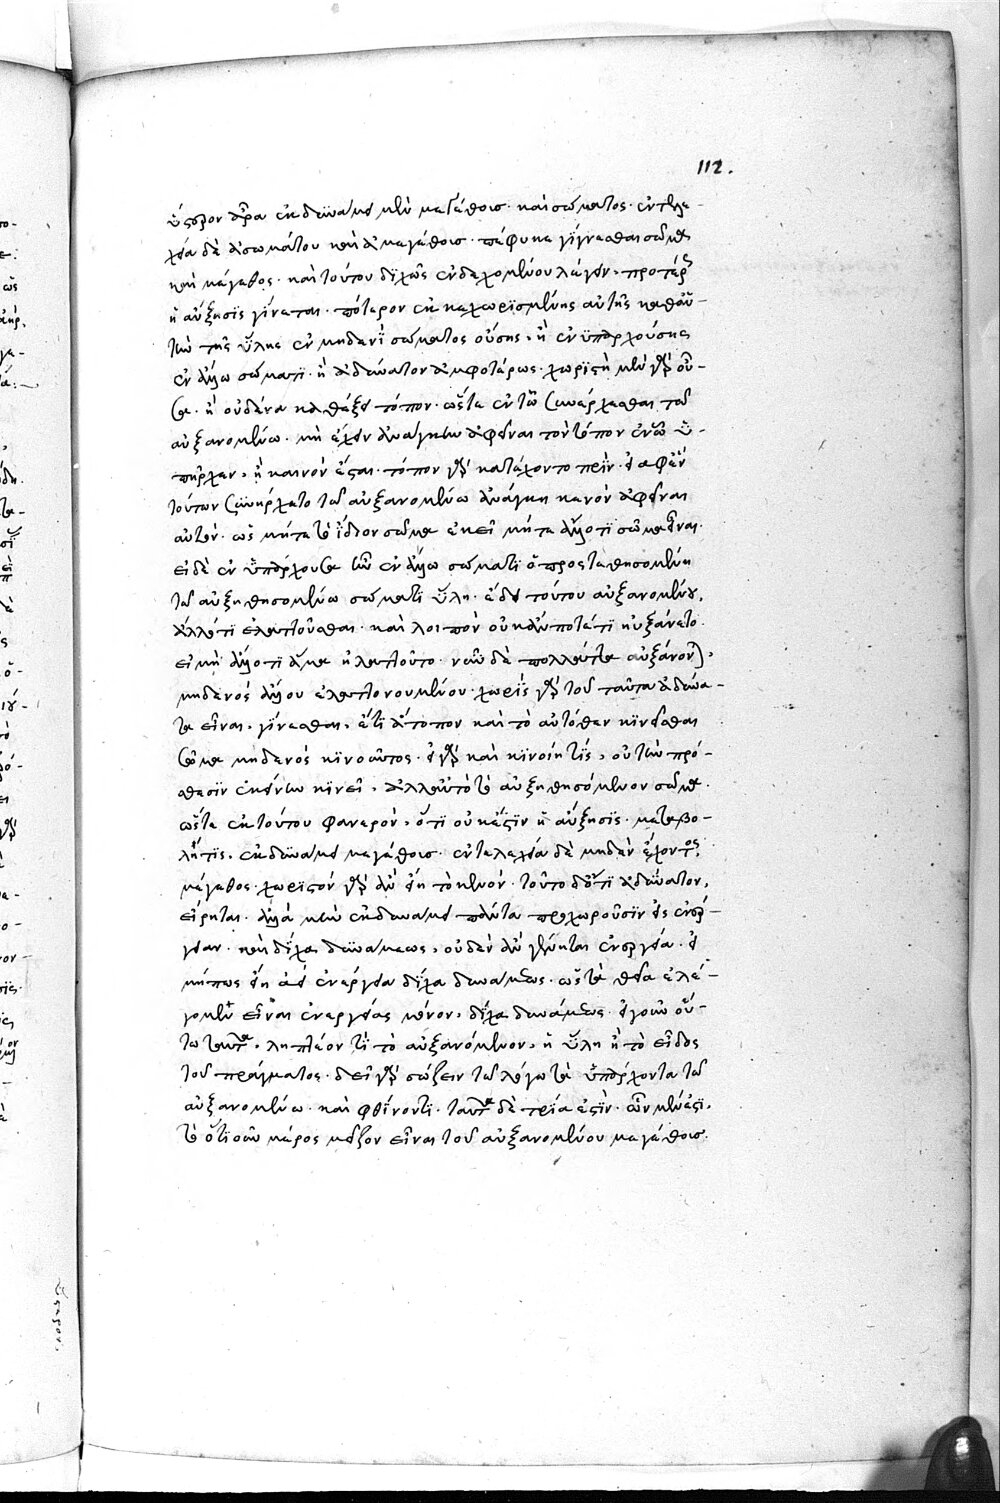 112.
ὕστερον ἄρα ἐκ δυνάμει μὲν μεγέθους. καὶ σώματος. ἐντελε-
χείᾳ δὲ ἀσωμάτου καὶ ἀμεγέθους. πέφυκε γίγνεσθαι σῶμα
καὶ μέγεθος. καὶ τούτου διχῶς ἐνδεχομένου λέγειν. προτέρως
ἡ αὔξησις γίνεται. πότερον ἐκ κεχωρισμένης αὐτῆς καθ' αὑ-
τὴν τῆς ὕλης ἐν μηδενὶ σώματος οὔσης. ἢ ἐνυπαρχούσης
ἐν ἄλλω σώματι. ἢ ἀδύνατον ἀμφοτέρως. χωρὶς ἢ μὲν γὰρ οὖ-
σα. ἢ οὐδένα καθέξει τόπον. ὥστε ἐν τῶ συνέρχεσθαι τῶ
αὐξανομένω. μὴ ἔχειν ἀνάγκην ἀφεῖναι τὸν τόπον ἐν ὧ ὑ-
πῆρχεν. ἢ κενὸν ἔσται. τόπον γὰρ κατέχοντα πρὶν. εἰ ἀφ' ἑν
τούτων συνήρχετο τῶ αὐξανομένω ἀνάγκη κενὸν ἀφεῖναι
αὐτόν. ὡς μήτε τὸ ἴδιον σῶμα ἐκεῖ μήτε ἄλλο τι σῶμα εἶναι.
εἰ δὲ ἐνυπάρχουσα τὴν ἐν ἄλλω σώματι ὁ προστεθησομένη
τῶ αὐξηθησομένω σώματι ὕλη. ἔδει τούτου αὐξανομένου,
ἄλλό τι ἐλαττοῦσθαι. καὶ λοιπὸν οὐκ ἄν ποτέ τι ηὐξάνετο.
εἰ μὴ ἄλλο τι ἅμα ἠλαττοῦτο. νῦν δὲ πολλὰ τὰ αὐξάνονται.
μηδενὸς ἄλλου ἐλαττονουμένου. χωρὶς γὰρ τοῦ ταῦτα ἀδύνα-
τα εἶναι, γίνεσθαι. ἔτι ἄτοπον καὶ τὸ αὐτόθεν κινεῖσθαι
σῶμα μηδενὸς κινοῦντος. εἰ γὰρ καὶ κινοίη τίς, οὐ τὴν πρό-
θεσιν ἐκείνην κινεῖ, ἀλλ' αὐτὸ τὸ αὐξηθησόμενον σῶμα.
ὥστε ἐκ τούτου φανερὸν, ὅτι οὐκ ἔστιν ἡ αὔξησις. μεταβο-
λή τις. ἐκ δυνάμει μεγέθους. ἐντελεχείᾳ δὲ μηδὲν ἔχοντος
μέγεθος. χωριστὸν γὰρ ἂν εἴη τὸ κενόν. τοῦτο δ' ὅτι ἀδύνατον,
εἴρηται. ἀλλὰ μὴν ἐκ δυνάμει πάντα προχωροῦσιν εἰς ἐνέρ-
γειαν. καὶ δίχα δυνάμεως, οὐδὲν ἂν γένηται ἐνεργείᾳ. εἰ
μήπως εἴη ἀεὶ ἐνέργεια δίχα δυνάμεως. ὥστε τὰ θεῖα ἐλέ-
γομεν εἶναι ἐνεργείας μόνον, δίχα δυνάμεως. εἰ γοῦν οὕ-
τω ταῦτα, ληπτέον τί τὸ αὐξανόμενον. ἡ ὕλη ἢ τὸ εἶδος
τοῦ πράγματος. δεῖ γὰρ σώζειν τῶ λόγω τὰ ὑπάρχοντα τῶ
αὐξανομένω. καὶ φθίνοντι. ταῦτα δὲ τρία ἐστίν. ὧν μέν ἐστι,
τὸ ὁτιοῦν μέρος μεῖζον εἶναι τοῦ αὐξανομένου μεγέθους.